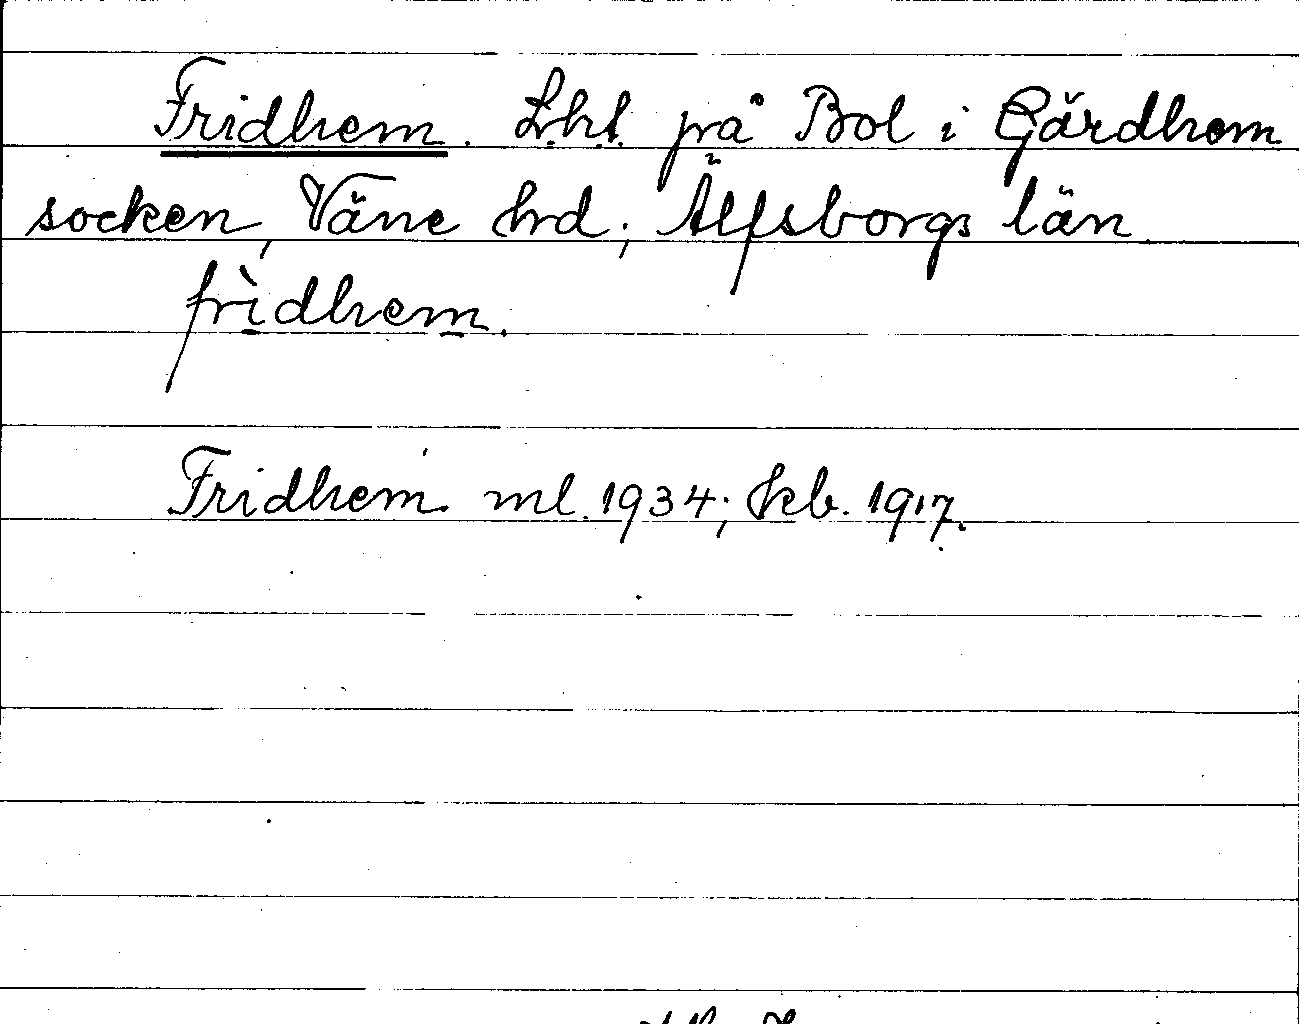 Fridhem. Lht. på Bol i Gärdhem
socken, Väne hrd; Älfsborgs län
frìdhem.
Fridhem ml. 1934; kb. 1917.